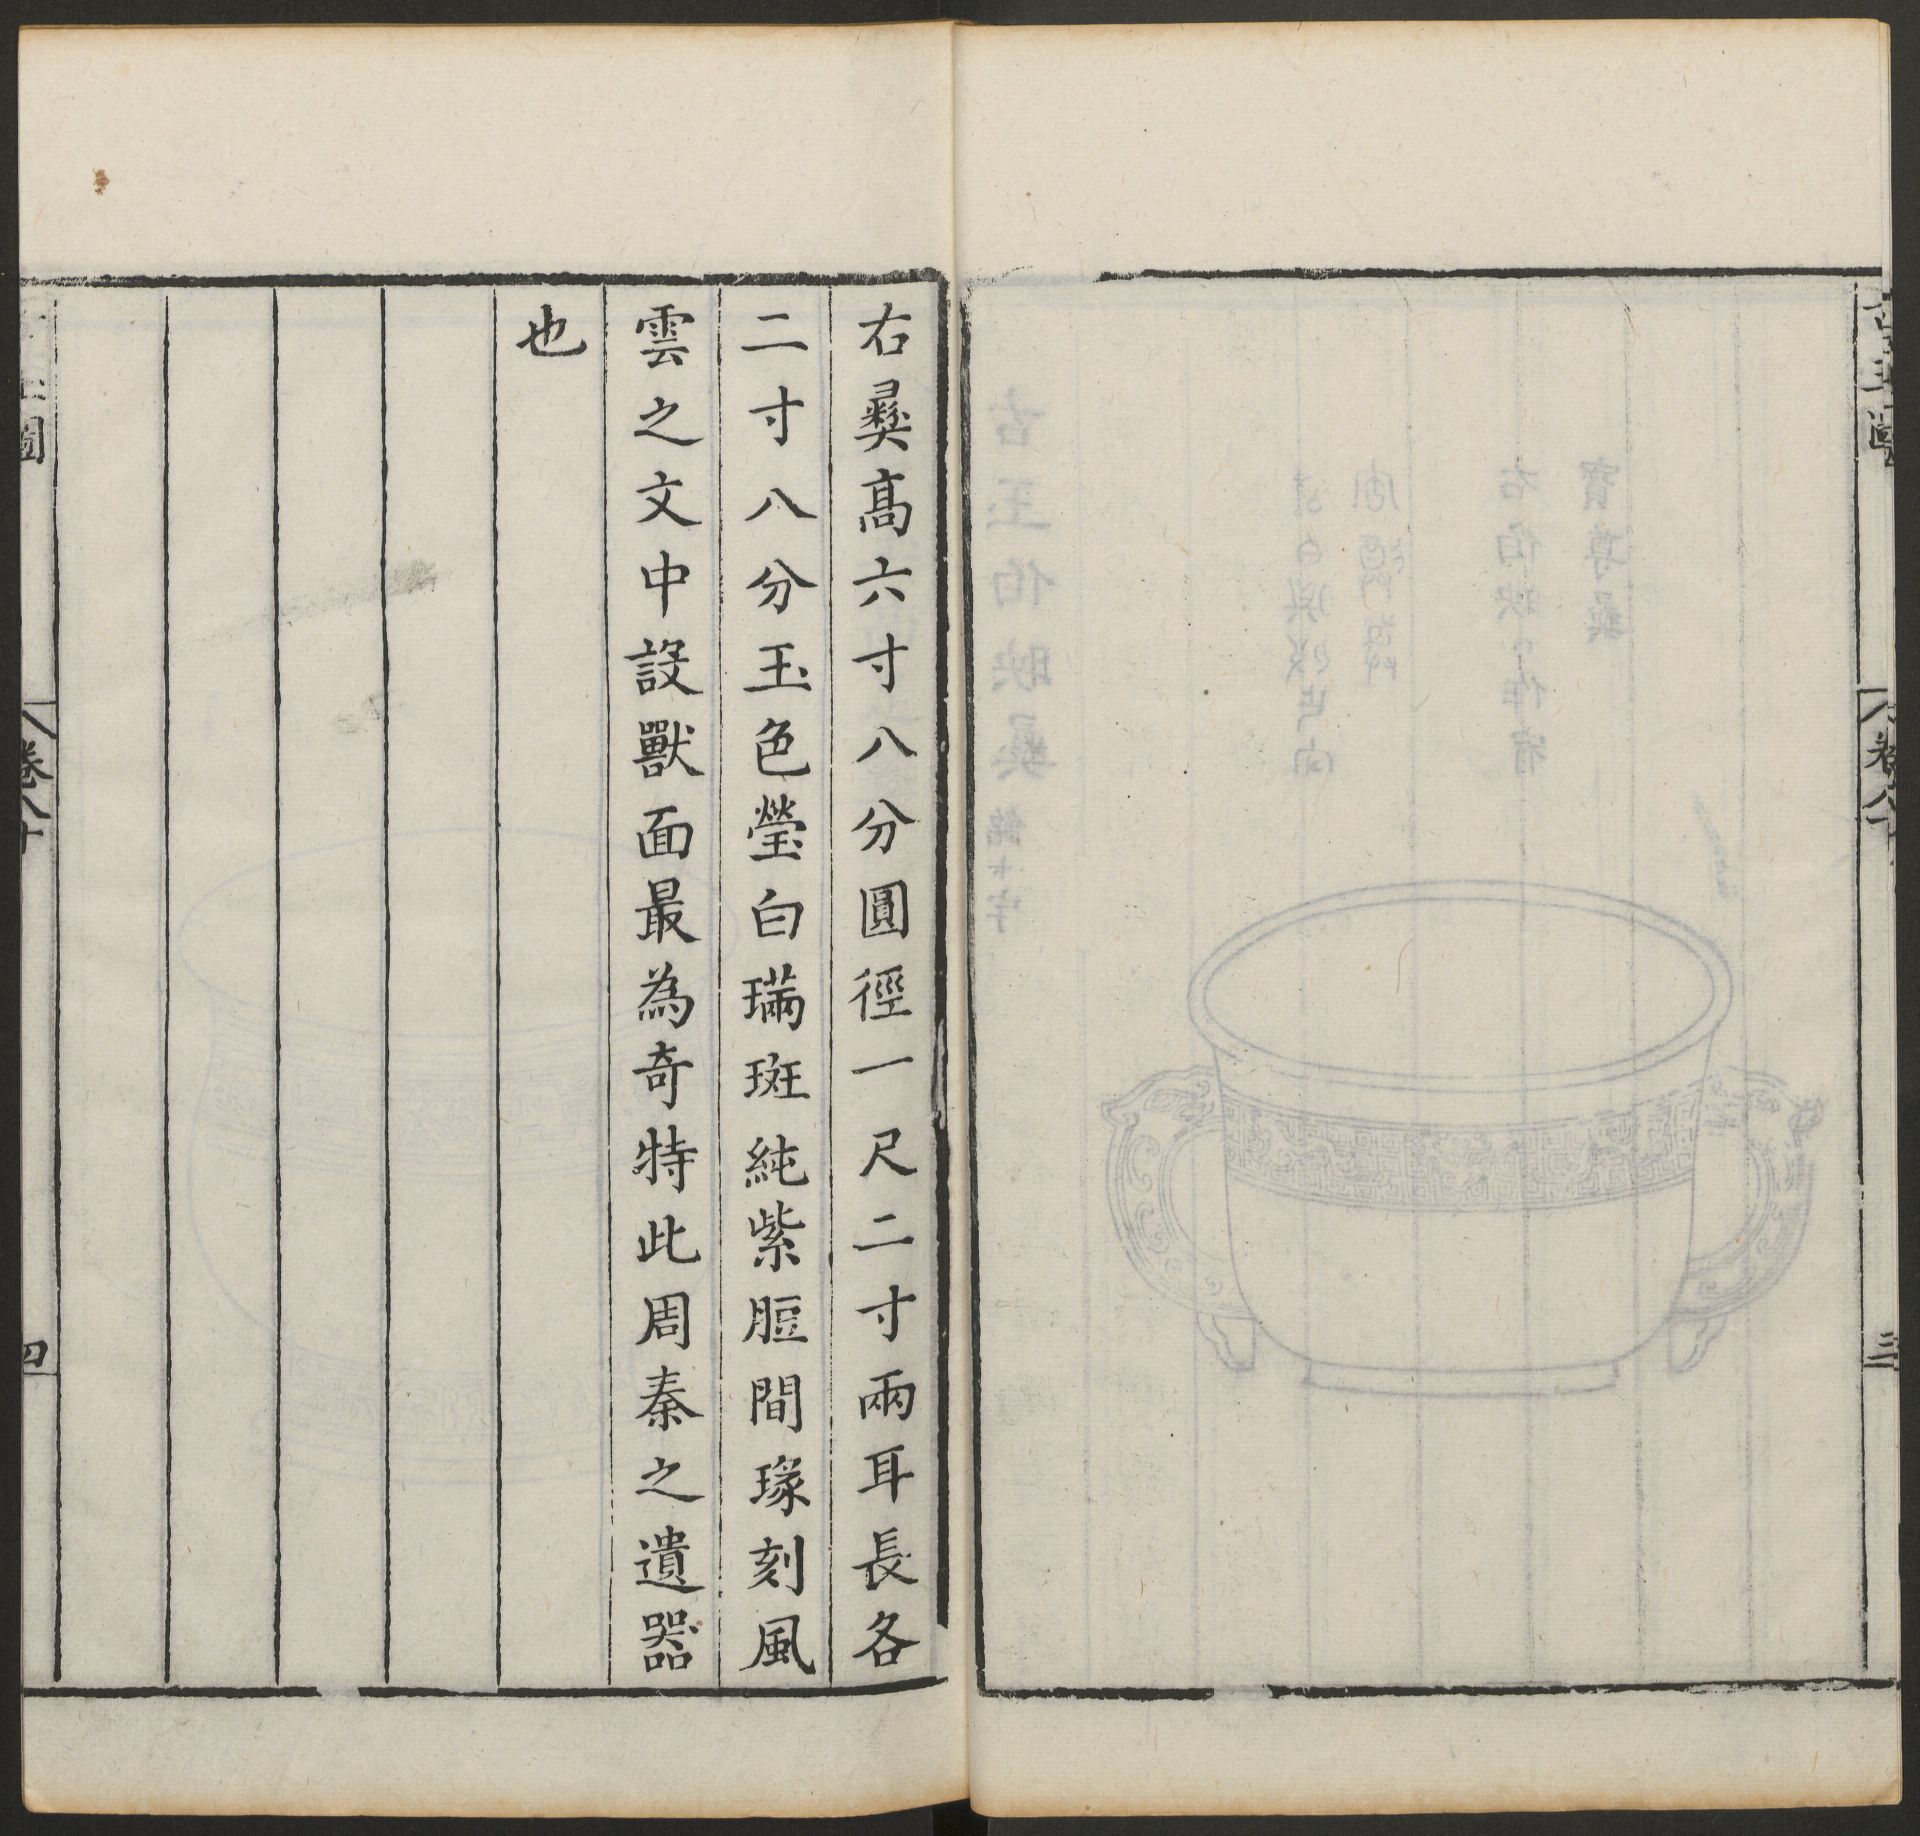 古玉圖
卷八十
三
右彛高六寸八分圓徑一尺二寸兩耳長各
二寸八分玉色瑩白璊斑純紫脰間瑑刻風
雲之文中設獸面最為奇特此周秦之遺器
也
圖
卷八十
四